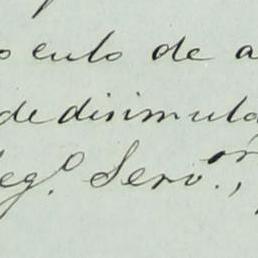 o culo de a
dedisimula
Seg.º Serv.ºr,